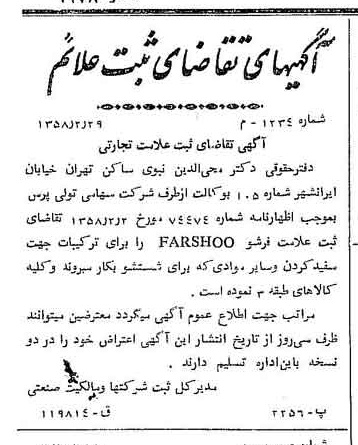 آگهیهای تقاضای ثبت علائم
شماره ۱۲۳۴ - م ۱۳۵۸/۲/۲۹
آگهی تقاضای ثبت علامت تجارتی
دفترحقوقی دکتر محی‌الدین نبوی ساکن تهران خیابان
ایرانشهر شماره ۱۰۵ بوکالت ازطرف شرکت سهامی تولی پرس
بموجب اظهارنامه شماره ۷۴۴۷۴ مورخ ۱۳۵۸/۲/۲ تقاضای
ثبت علامت فرشو FARSHOO را برای ترکیبات جهت
سفیدکردن وسایر موادی‌که برای شستشو بکار میروند وکلیه
کالاهای طبقه ۳ نموده است .
مراتب جهت اطلاع عموم آگهی میگردد معترضین میتوانند
ظرف سی‌روز از تاریخ انتشار این آگهی اعتراض خود را در دو
نسخه باین‌اداره تسلیم دارند .
مدیرکل ثبت شرکتها ومالکیت صنعتی
پ-۲۲۵۶ ق-۱۱۹۸۱۴